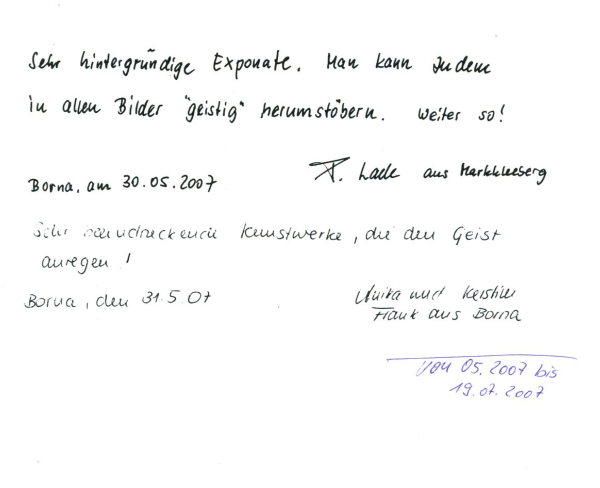 Sehr hintergründige Exponate. Man kann zudem
in allen Bilder "geistig" herumstöbern. Weiter so!
Borna, am 30.05.2007
F. Lade aus Markkleeberg
Sehr beeindruckende Kunstwerke, die den Geist
anregen!
Borna, den 31.5.07
Anika und Kerstin
Frank aus Borna
05.2007 bis
19.07.2007